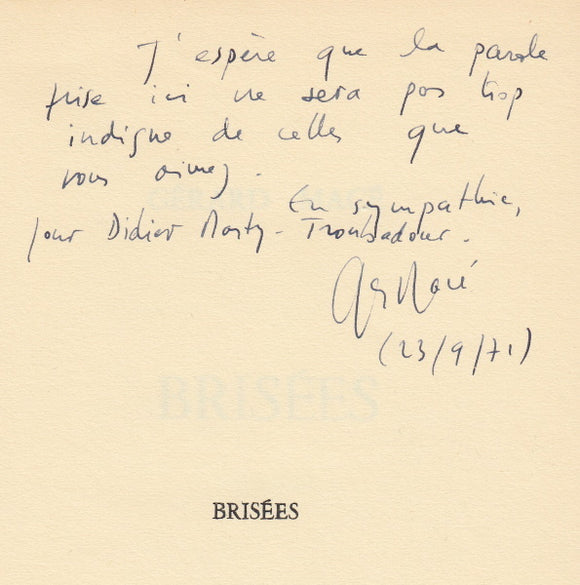 J'espère que la parole
prise ici ne sera pas trop
indigne de celles que
vous aimez.
En sympathie,
pour Didier - Troubadour.
(23/9/71)
BRISÉES
BRISÉES